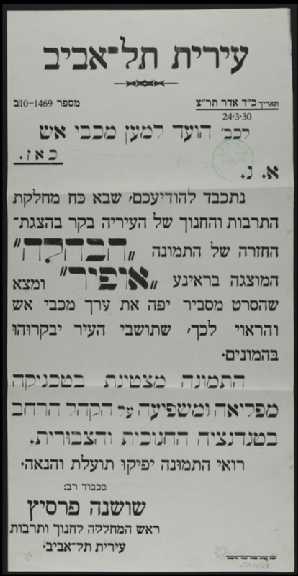 עירית תל־אביב
תאריך כ״ד אדר תר״צ
מספר 1469–10ב
24·3·30
לכב׳ הועד למען מכבי אש
כאן.
א. נ.
נתכבד להודיעכם, שבא כח מחלקת
התרבות והחנוך של העיריה בקר בהצגת־
החזרה של התמונה „הבהלה״
המוצגה בראינע „אופיר״ ומצא
שהסרט מסביר יפה את ערך מכבי אש
והראוי לכך, שתושבי העיר יבקרוהו
בהמונים.
התמונה מצטינת בטכניקה
מפליאה ומשפיעה על הקהל הרחב
בטנדנציה החנוכית והצבורית.
רואי התמונה יפיקו תועלת והנאה.
בכבוד רב:
שושנה פרסיץ
ראש המחלקה לחנוך ותרבות
עירית תל־אביב.